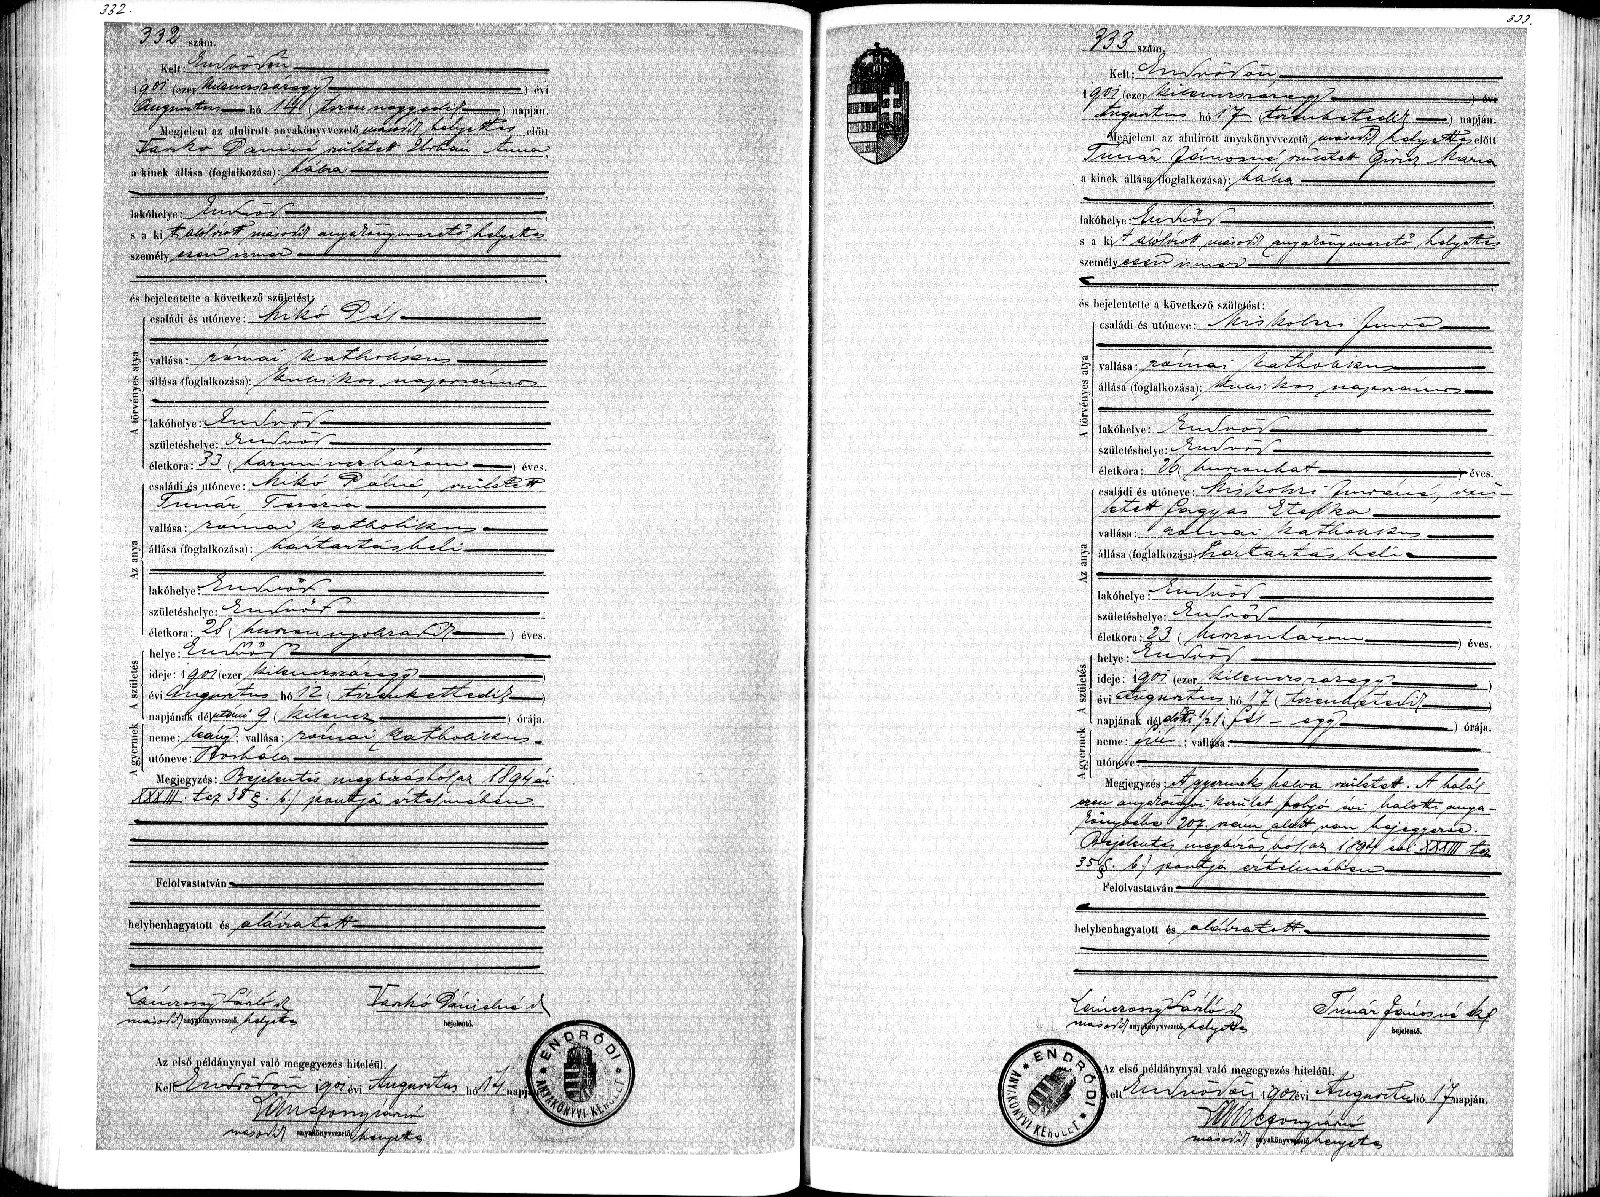 332.
332 szám.
Kelt Endrődön
1901 (ezer kilencszázegy) évi
Augusztus hó 14 (tizennegyedik) napján.
Megjelent az alulirott anyakönyvvezető másodh helyettes előtt
Varkó Dánielné született Anna
a kinek állása (foglalkozása): bába
lakóhelye: Endrőd
s a kit alulirott másodh anyakönyvvezető helyettes
személyesen ismer
és bejelentette a következő születést:
A törvényes atya
családi és utóneve: Mikó Pál
vallása: római katholikus
állása (foglalkozása): kubikos napszámos
lakóhelye: Endrőd
születéshelye: Endrőd
életkora: 33 (harminczhárom) éves.
Az anya
családi és utóneve: Mikó Pálné, született
Timár Terézia
vallása: római katholikus
állása (foglalkozása): háztartásbeli
lakóhelye: Endrőd
születéshelye: Endrőd
életkora: 28 (huszonnyolczadik) éves.
A születés
helye: Endrőd
ideje: 1901 (ezer kilencszázegy)
évi Augusztus hó 12 (tizenkettedik)
napjának délutáni 9 (kilencz) órája.
A gyermek
neme: leány; vallása: római katholikus
utóneve: Borbála
Megjegyzés: Bejelentés megbízásból az 1894 évi
XXXIII. tcz 35 §. b.) pontja értelmében
Felolvastatván
helybenhagyatott és aláíratott
Lánczony László
másodh anyakönyvvezető helyettes
Varkó Dánielné
bejelentő.
Az első példánynyal való megegyezés hiteléül.
Kelt Endrődön 1901 évi Augusztus hó 14 napján
másodh anyakönyvvezető helyettes
ENDRŐDI ANYAKÖNYVI KERÜLET
333.
333 szám.
Kelt: Endrődön
1901 (ezer kilencszázegy) évi
Augusztus hó 17 (tizenhetedik) napján.
Megjelent az alulirott anyakönyvvezető másodh helyettes előtt
Timár Jánosné, született Giricz Mária
a kinek állása (foglalkozása): bába
lakóhelye: Endrőd
s a kit alulirott másodh anyakönyvvezető helyettes
személyesen ismer
és bejelentette a következő születést:
A törvényes atya
családi és utóneve: Miskolczi Imre
vallása: római katholikus
állása (foglalkozása): kubikos napszámos
lakóhelye: Endrőd
születéshelye: Endrőd
életkora: 26 (huszonhat) éves.
Az anya
családi és utóneve: Miskolczi Imréné, szü-
letett Gagyas Etelka
vallása: római katholikus
állása (foglalkozása): háztartásbeli
lakóhelye: Endrőd
születéshelye: Endrőd
életkora: 23 (huszonhárom) éves.
A születés
helye: Endrőd
ideje: 1901 (ezer kilencszázegy)
évi Augusztus hó 17 (tizenhetedik)
napjának délelőtti 1/2 1 (fél – egy) órája.
A gyermek
neme: fiú; vallása:
utóneve:
Megjegyzés: A gyermek halva született. A halál
ezen anyakönyvi kerület folyó évi halotti anya-
könyvébe 207. szám alatt van bejegyezve.
Bejelentés megbízásból az 1894 évi XXXIII tcz
35 §. b.) pontja értelmében
Felolvastatván
helybenhagyatott és aláíratott
Lánczony László
másodh anyakönyvvezető helyettes
Timár Jánosné
bejelentő.
Az első példánynyal való megegyezés hiteléül.
Kelt Endrődön 1901 évi Augusztus hó 17 napján.
másodh anyakönyvvezető helyettes
ENDRŐDI ANYAKÖNYVI KERÜLET